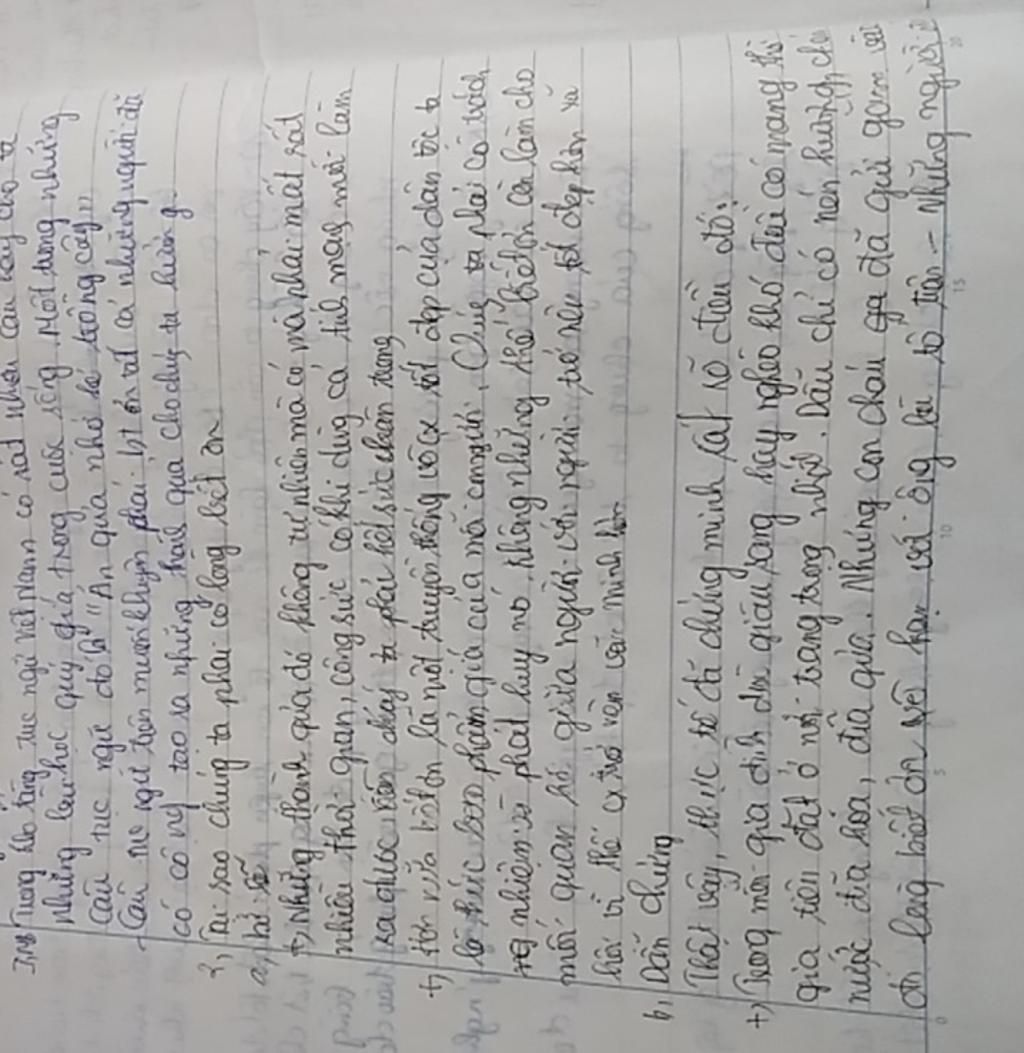 Trong kho tàng tục ngữ Việt Nam có rất nhiều câu hay cho ta
những bài học quý giá trong cuộc sống. Một trong những
câu tục ngữ đó là "Ăn quả nhớ kẻ trồng cây"
- Câu tục ngữ trên muốn khuyên phải bt ơn tất cả những người đã
có công tạo ra những thành quả cho chúng ta hưởng
2, Tại sao chúng ta phải có lòng biết ơn
a, lí lẽ
+) Những thành quả đó không tự nhiên mà có mà phải mất rất
nhiều thời gian, công sức có khi dùng cả tính mạng mới làm
ra được nên chúng ta phải hết sức trân trọng
+) Hơn nữa biết ơn là một truyền thống vô cx tốt đẹp của dân tộc ta
là thước đo phẩm giá của mỗi con người. Chúng ta phải có trách
nhiệm phát huy nó, không những thế biết ơn còn làm cho
mối quan hệ giữa người với người trở nên tốt đẹp hơn xã
hội vì thế cx trở nên văn minh hơn
b, Dẫn chứng
Thật vậy, thực tế đã chứng minh rất rõ điều đó:
+) Trong mỗi gia đình dù giàu sang hay nghèo khó đều có mang thờ
gia tiên đặt ở nơi trang trọng nhất. Dẫu chỉ có nén hương, chén
nước đĩa hoa, đĩa quả. Nhưng con cháu đã gửi gắm vào
đó lòng biết ơn với ông bà tổ tiên - Những người